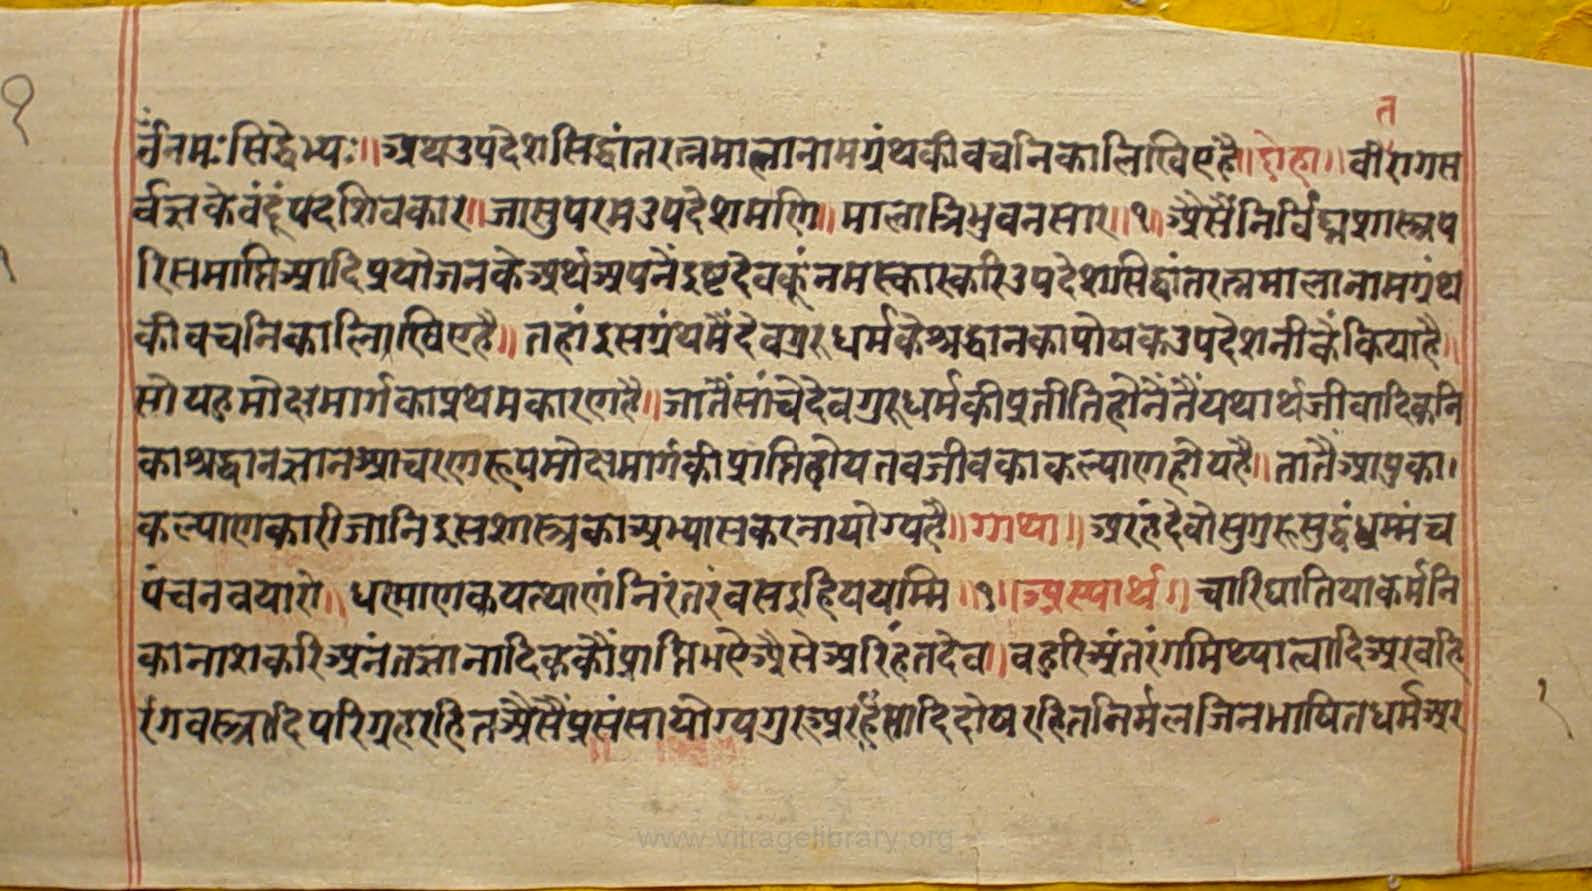 १
त
ॐनमःसिद्धेभ्यः॥अथउपदेशसिद्धांतरत्नमालानामग्रंथकीवचनिकालिखिएहै॥दोहा॥वीरागस
र्वज्ञकेवंदूंपदशिवकार॥जासुपरमउपदेशमणि॥मालात्रिभुवनसार॥१॥अैसैंनिर्विघ्नशास्त्रप
रिसमाप्तिआदिप्रयोजनकेअर्थअपनैंइष्टदेवकूंनमस्कारकरिउपदेशसिद्धांतरत्नमालानामग्रंथ
कीवचनिकालिखिएहै॥तहांइसग्रंथमैंदेवगुरुधर्मकेश्रद्धानकापोषकउपदेशनीकैंकियाहै॥
सोयहुमोक्षमार्गकाप्रथमकारणहै॥जातैंसांचेदेवगुरुधर्मकीप्रतीतिहोनैंतैंयथार्थजीवादिकनि
काश्रद्धानज्ञानआचरणरूपमोक्षमार्गकीप्राप्तिहोयतवजीवकाकल्याणहोयहै॥तातैंआपुका।
कल्याणकारीजानिइसशास्त्रकाअभ्यासकरनायोग्यहै॥गाथा॥अरहंदेवोसुगुरूसुद्धंधम्मंच
पंचनवयारो॥धरमाणकयत्याणंनिरंतरंवसइहिययम्मि॥१॥अस्यार्थ॥चारिघातियाकर्मनि
कानाशकरिअनंतज्ञानादिककौंप्राप्तिभऐअैसेअरिहंतदेव॥वहुरिअंतरंगमिथ्यात्वादिअरवहि
रंगवस्त्रादिपरिग्रहरहितअैसैंप्रसंसायोग्यगुरुअरहिंसादिदोषरहितनिर्मलजिनभाषितधर्मअर
www.vitragelibrary.org